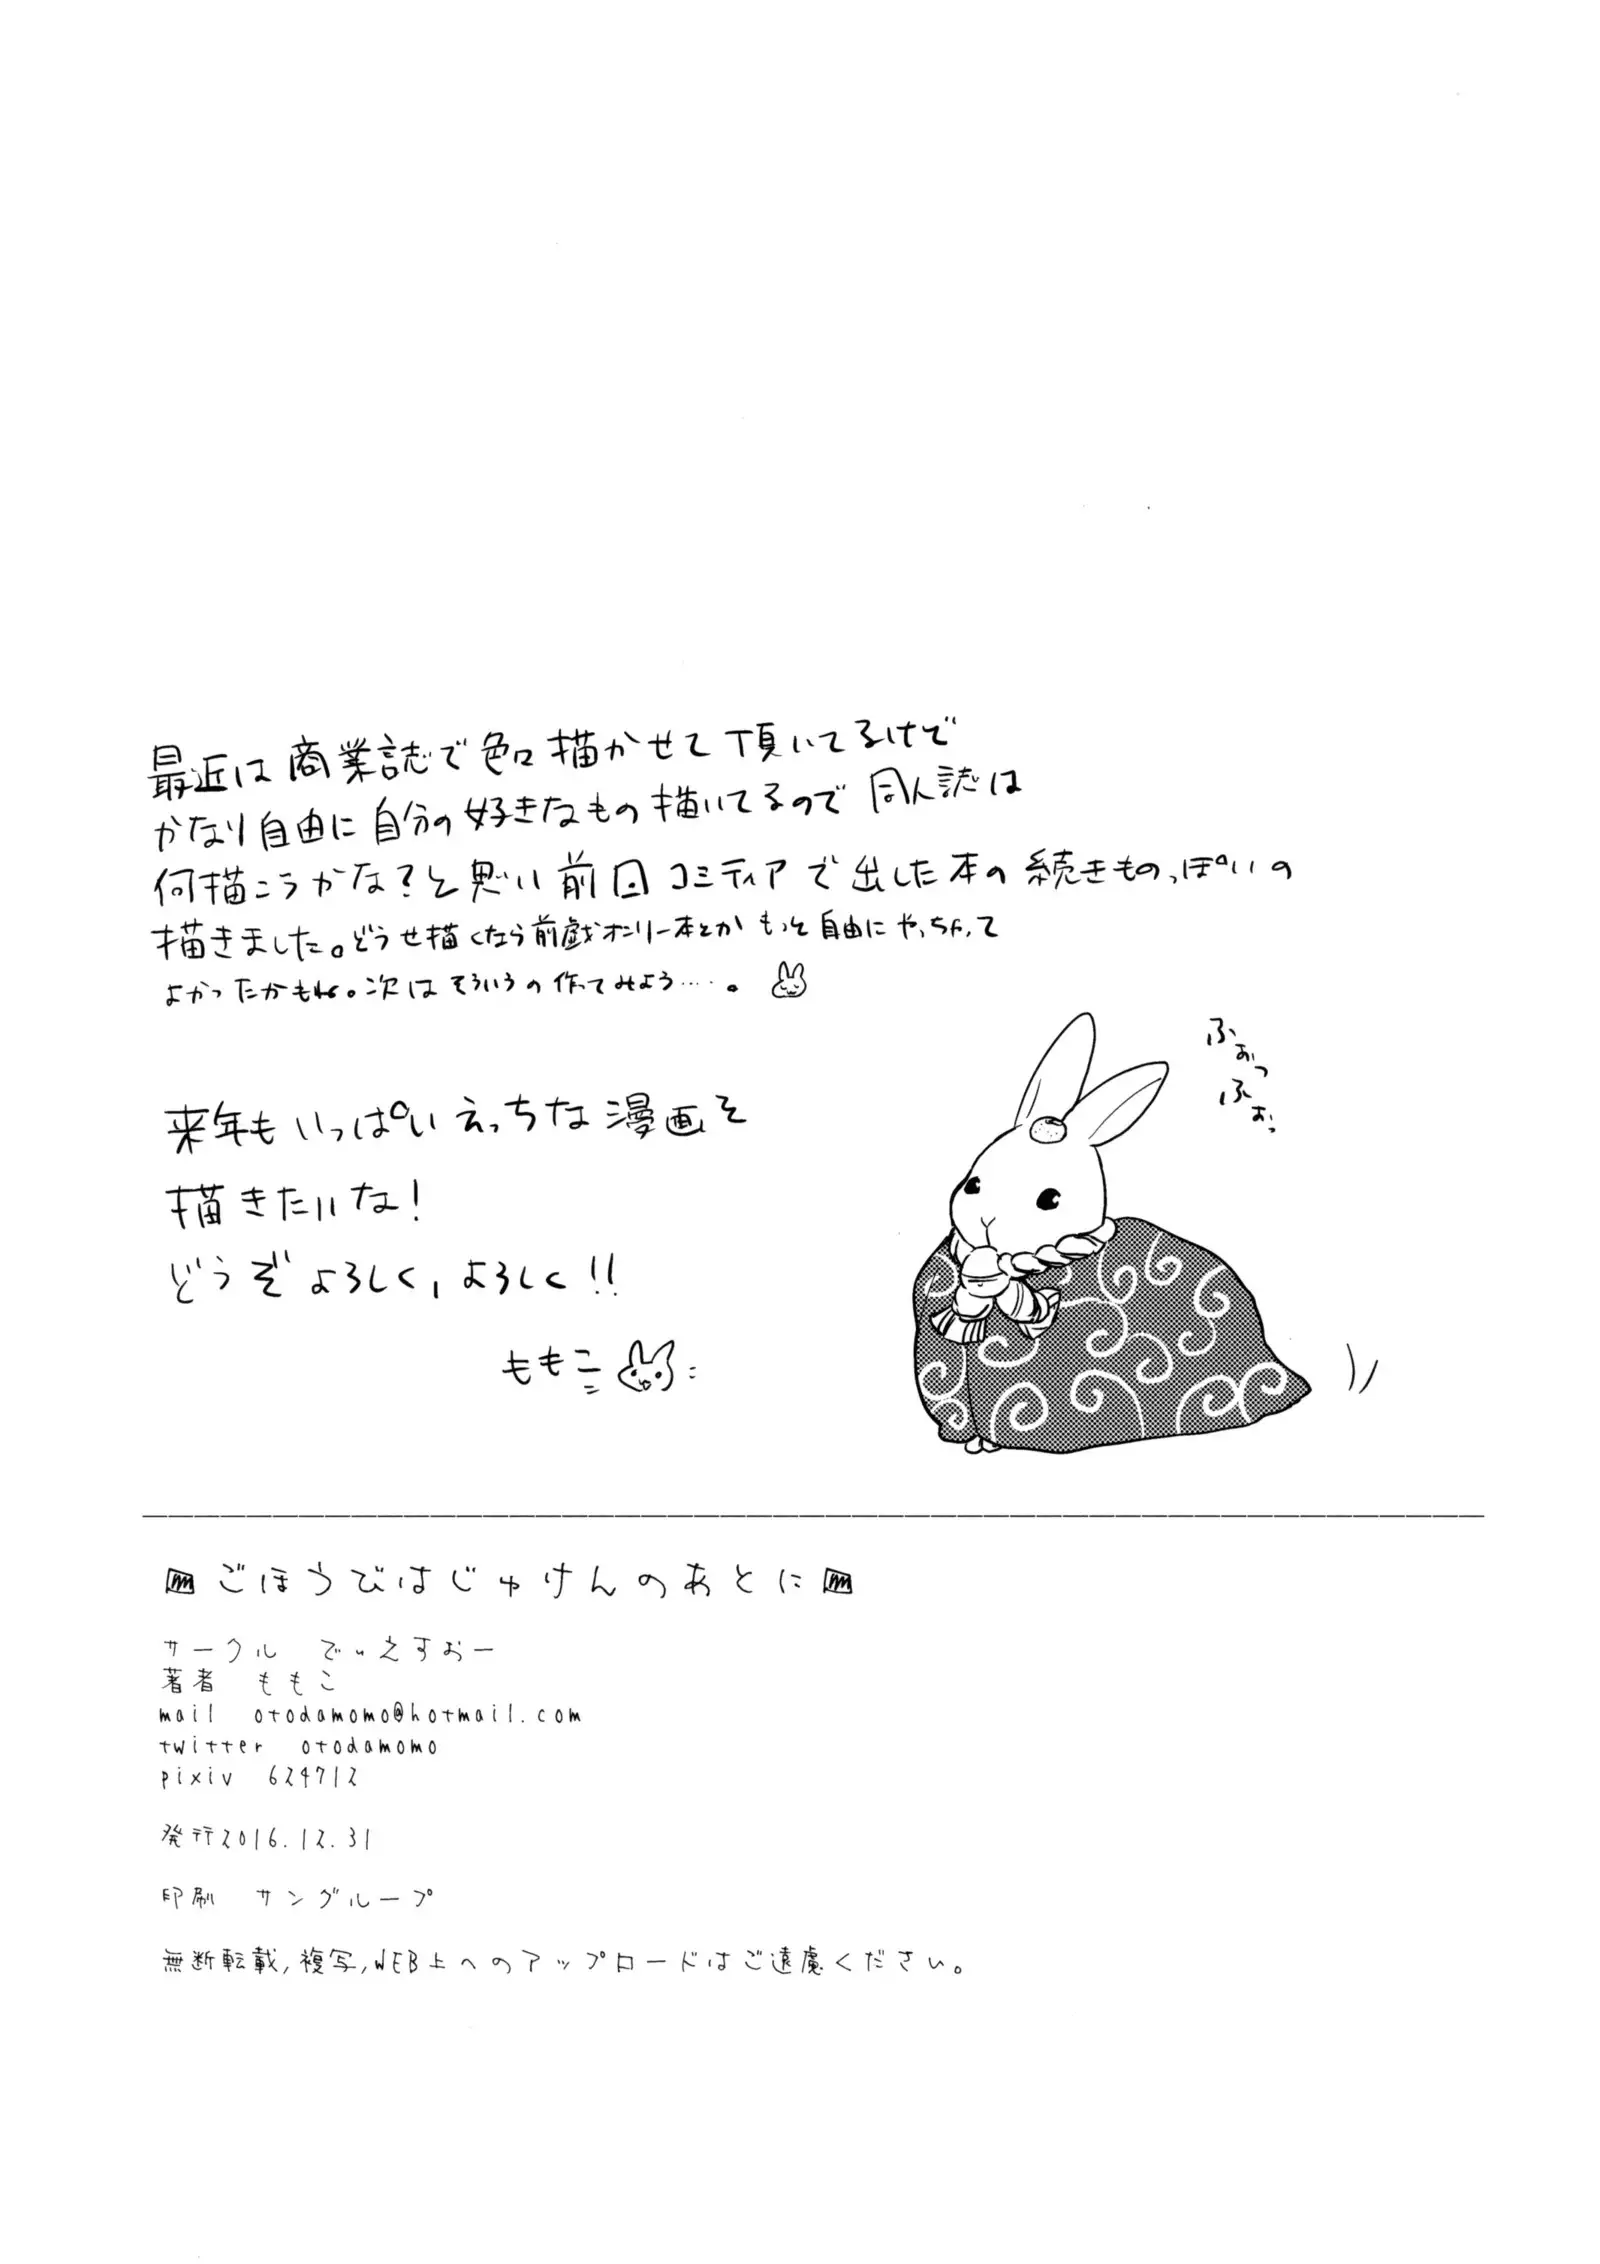 最近は商業誌で色々描かせて頂いてるけど
かなり自由に自分の好きなもの描いてるので同人誌は
何描こうかな?と思い前回コミティアで出した本の続きものっぽいの
描きました。どうせ描くなら前戯オンリー本とかもっと自由にやっちゃって
よかったかもね。次はそういうの作ってみよう……。
ふぉっ
ふぉっ
来年もいっぱいえっちな漫画を
描きたいな!
どうぞよろしく,よろしく!!
ももこ
ごほうびはじゅけんのあとに
サークル でぃえすおー
著者 ももこ
mail otodamomo@hotmail.com
twitter otodamomo
pixiv 624712
発行2016.12.31
印刷 サングループ
無断転載,複写,WEB上へのアップロードはご遠慮ください。